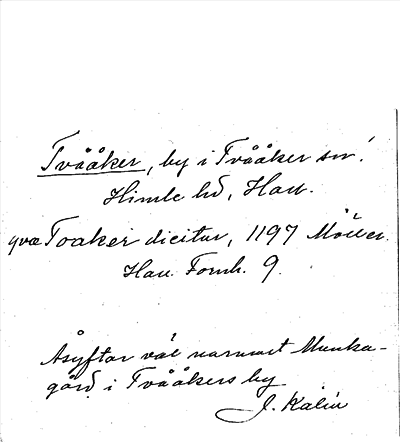 Tvååker, by i Tvååker sn.
Himle hd, Hall.
qvæ Toaker dicitur, 1197 Möller.
Hall. Fornh. 9.
Åsyftar väl närmast Munka-
gård i Tvååkers by
J. Kalén